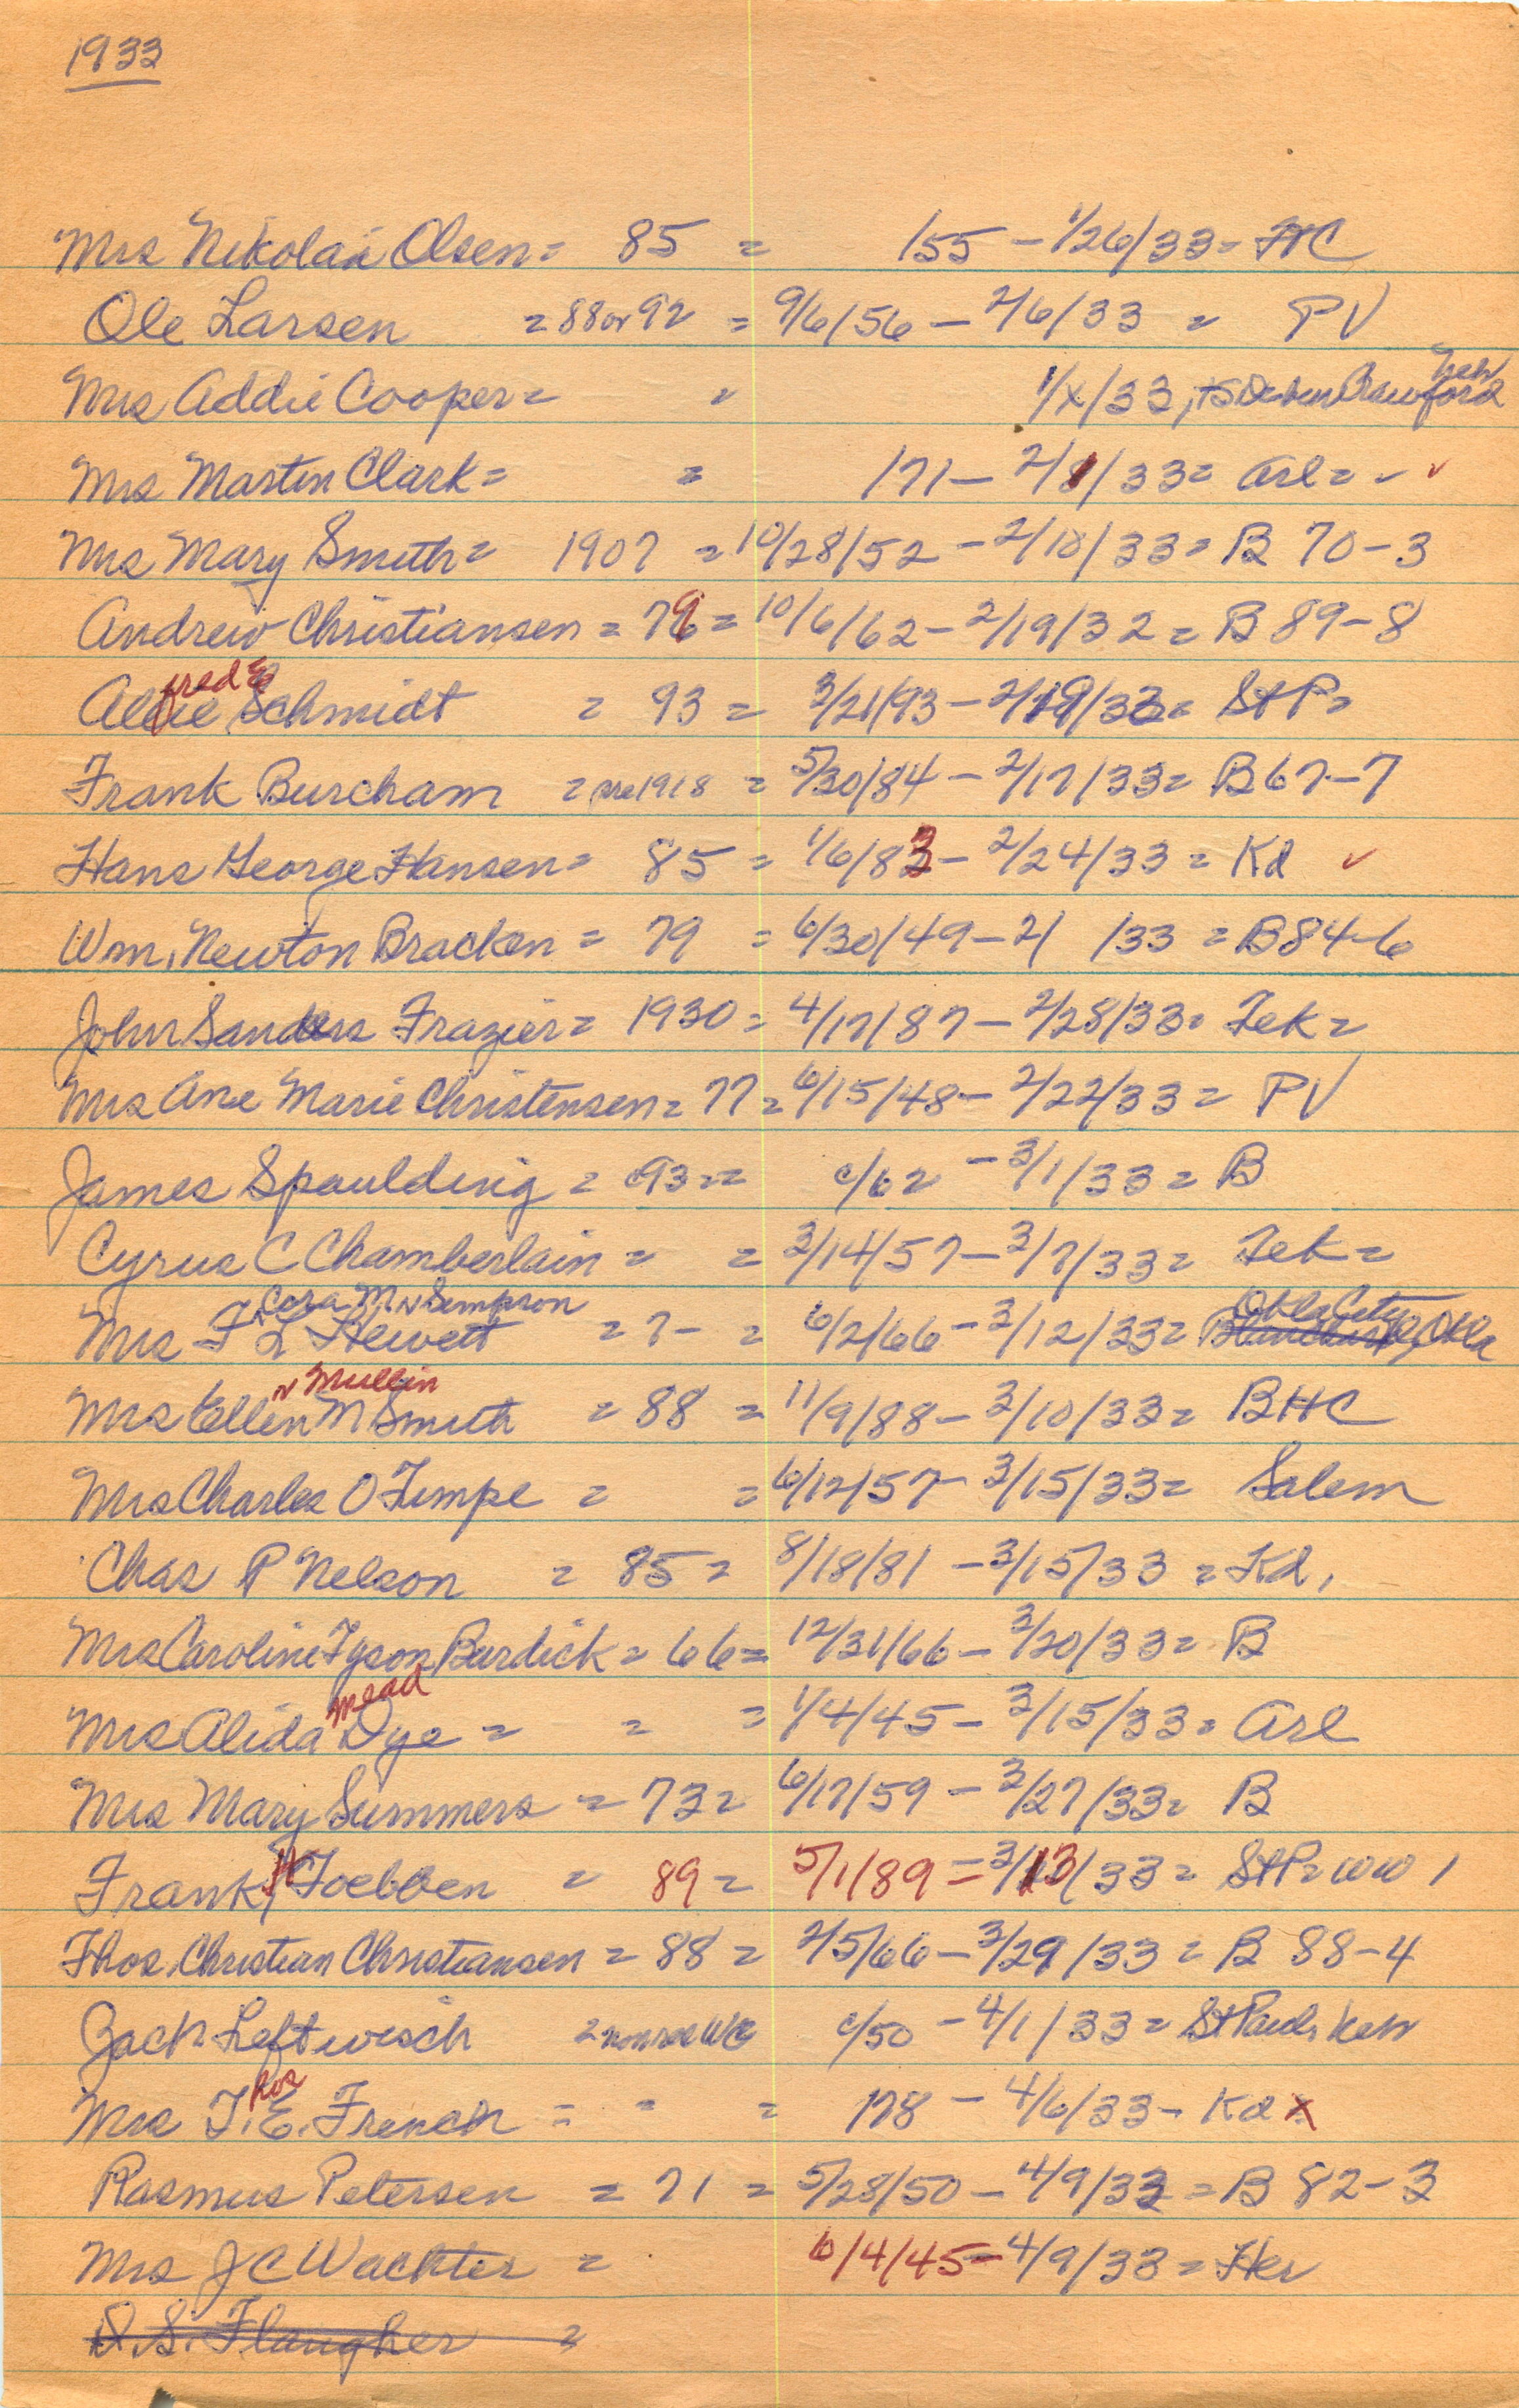 1933
Mrs Nikolai Olsen = 85 = /55 - 1/26/33 = HC
Ole Larsen = 88 or 92 = 9/6/56 - 2/6/33 = PV
Mrs Addie Cooper = = 1/x/33, Crawford Neb
Mrs Martin Clark = = /71 - 2/8/33 = Arl = ✓ ✓
Mrs Mary Smith = 1907 = 10/28/52 - 2/18/33 = B 70-3
Andrew Christiansen = 79 = 10/6/62 - 2/19/32 = B 89-8
fred E
Alfie Schmidt = 93 = 3/21/93 - 2/19/33 = St P =
Frank Burcham = pre 1918 = 5/30/84 - 2/17/33 = B 67-7
Hans George Hansen = 85 = 1/6/83 - 2/24/33 = Kd ✓
Wm. Newton Bracken = 79 = 6/30/49 - 2/ /33 = B 84-6
John Sanders Frazier = 1930 = 4/17/87 - 2/28/33 = Tek =
Mrs Ane Marie Christensen = 77 = 6/15/48 - 2/22/33 = PV
James Spaulding = c93 = = c/62 - 3/1/33 = B
Cyrus C Chamberlain = = 3/14/57 - 3/7/33 = Tek =
Cora M N Simpson Okla City
Mrs F L Hewett = ? - = 6/2/66 - 3/12/33 = Okla
N Mullin
Mrs Ellen M Smith = 88 = 11/9/88 - 3/10/33 = BHC
Mrs Charles O Timpe = = 6/12/57 - 3/15/33 = Salem
Chas P Nelson = 85 = 8/18/81 - 3/15/33 = Kd,
Mrs Caroline Tyson Burdick = 66 = 12/31/66 - 3/20/33 = B
mead
Mrs Alida Dye = = = 1/4/45 - 3/15/33 = Arl
Mrs Mary Summers = 73 = 6/17/59 - 3/27/33 = B
Frank H Toebben = 89 = 5/1/89 = 3/13/33 = St P = WW 1
Thos. Christian Christiansen = 88 = 2/5/66 - 3/29/33 = B 88-4
Zach Leftwisch = c/50 - 4/1/33 = St Pauls Neb
hos
Mrs T. E. French = = = /78 - 4/6/33 - Kd x
Rasmus Petersen = 71 = 5/28/50 - 4/9/33 = B 82-3
Mrs J C Wachter = 6/4/45 - 4/9/33 = Her
D. S. Flaugher =